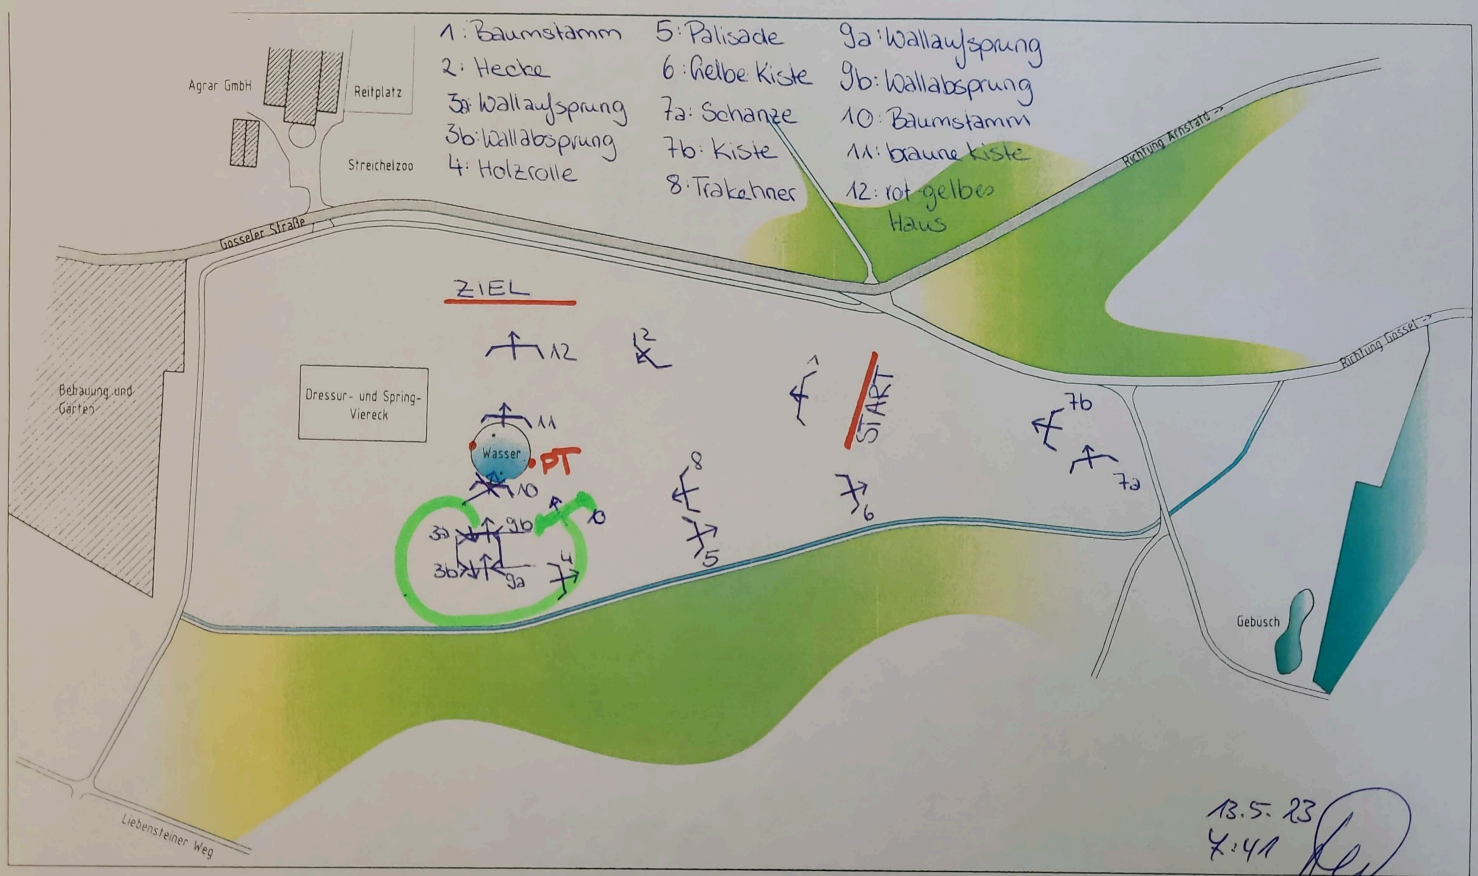 1: Baumstamm
2: Hecke
3a: Wallaufsprung
3b: Wallabsprung
4: Holzrolle
5: Palisade
6: Gelbe Kiste
7a: Schanze
7b: Kiste
8: Trakehner
9a: Wallaufsprung
9b: Wallabsprung
10: Baumstamm
11: braune Kiste
12: rot gelbes
Haus
Agrar GmbH
Reitplatz
Streichelzoo
Gosseler Straße
Richtung Arnstadt →
Richtung Gossel →
ZIEL
12
2
1
START
Bebauung und
Gärten
Dressur- und Spring-
Viereck
11
Wasser
PT
10
7b
7a
8
6
5
3a
9b
10
3b
9a
4
Gebüsch
Liebensteiner Weg
13.5.23
7:41